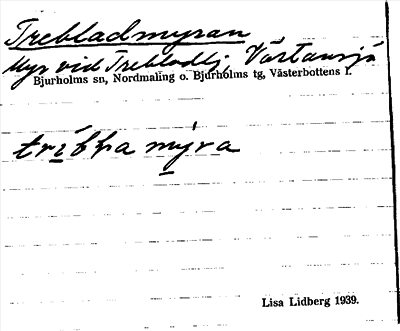 Trebladmyran
Myr vid Trebladbj, Västansjö
Bjurholms sn, Nordmaling o. Bjurholms tg, Västerbottens l.
tribba myra
Lisa Lidberg 1939.